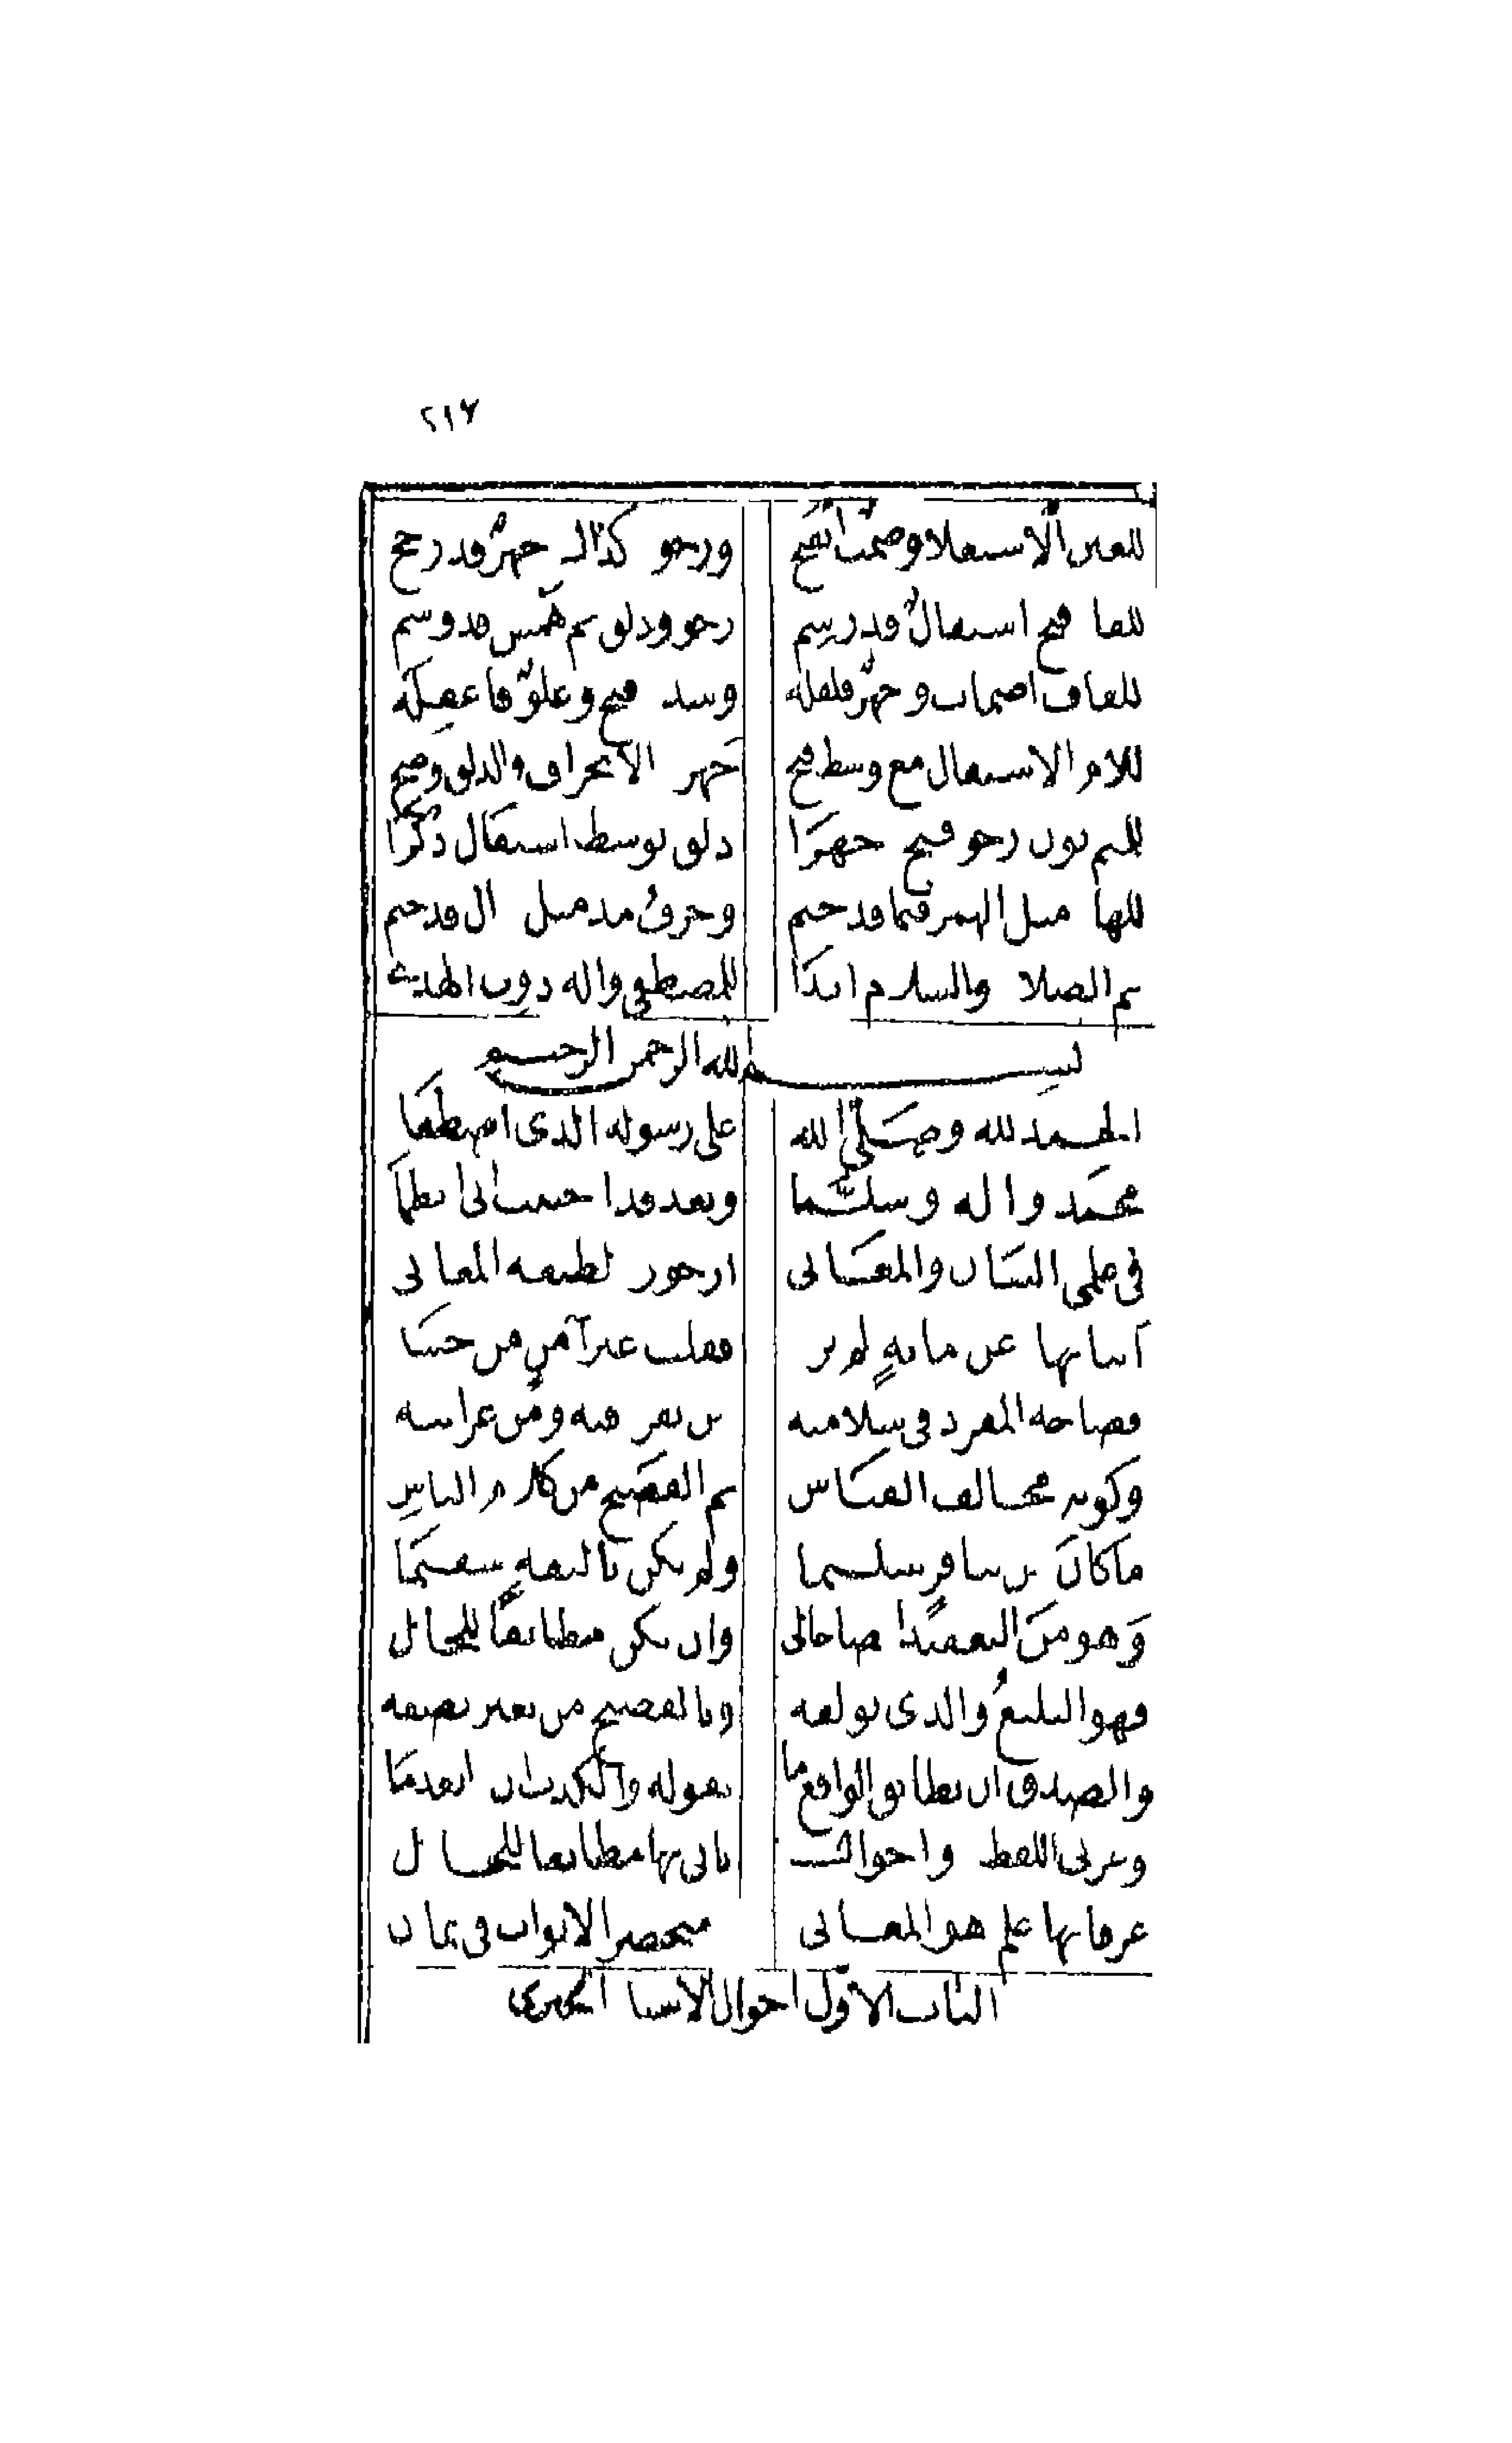 ٢١٧
للغين الاستعلا وصمت انفتح ورخو كذاك جهر قد رجح
للفا فتح استفال قد رسم رخو وذلق ثم همس قد وسم
للقاف اصمات وجهر قلقله وشد فتح وعلو فاعقله
للام الاستفال مع وسط فتح جهر الانحراف والذلق وضح
للميم نون رخو فتح جهرا ذلق توسط استفال ذكرا
للها مثل الهمز فيما قد حتم وحرف مد مثل ال قد ختم
ثم الصلا والسلام ابدا للمصطفى واله ذوى الهدى
بسم الله الرحمن الرحيم
الحمد لله وصلى الله على رسوله الذى اصطفا
محمد واله وسلما وبعد قد احببت انى انظما
فى علمى البيان والمعانى ارجوز لطيفه المعانى
ابياتها عن مايه لم تزد فقلت غير آمن من حسد
فصاحه المفرد فى سلامته من نفر فيه ومن غرابته
وكونه مخالف القياس ثم الفصيح من كلام الناس
ما كان من تنافر سليما ولم يكن تاليفه سقيما
وهو من التعقيد ايضا خالى وان يكن مطابقا للحال
فهو البليغ والذى يولفه وبالفصيح من يعبر نصفه
والصدق ان يطابق الواقع ما يقوله والكذب ان انعدما
وعربى اللفظ واحوال ياتى بها مطابقا للحال
عرفانها علم هو المعانى منحصر الابواب فى ثمان
الباب الاول احوال الاسناد الخبرى